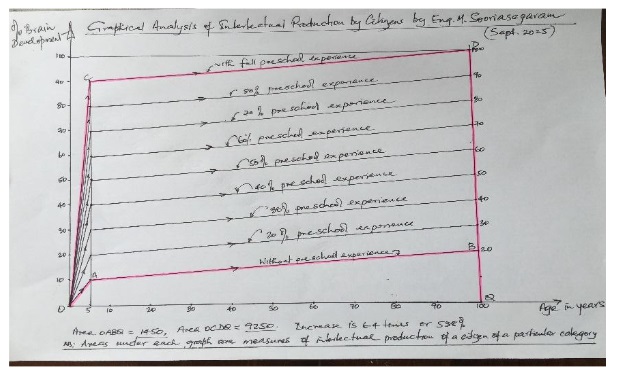 % Brain
Development
Graphical Analysis of Intellectual Production by Citizens by Eng. M. Sooriasegaram
(Sept. 2025)
100
with full preschool experience
90
80% preschool experience
80
70% preschool experience
70
60% preschool experience
60
50% preschool experience
50
40% preschool experience
40
30% preschool experience
30
20% preschool experience
20
Without preschool experience
10
A
B
C
D
O
Q
100
90
80
70
60
50
40
30
20
5
10
20
30
40
50
60
70
80
90
100
Age in years
Area OABQ = 1450, Area OCDQ = 9250. Increase is 6.4 times or 538%
NB: Areas under each graph are measures of intellectual production of a citizen of a particular category